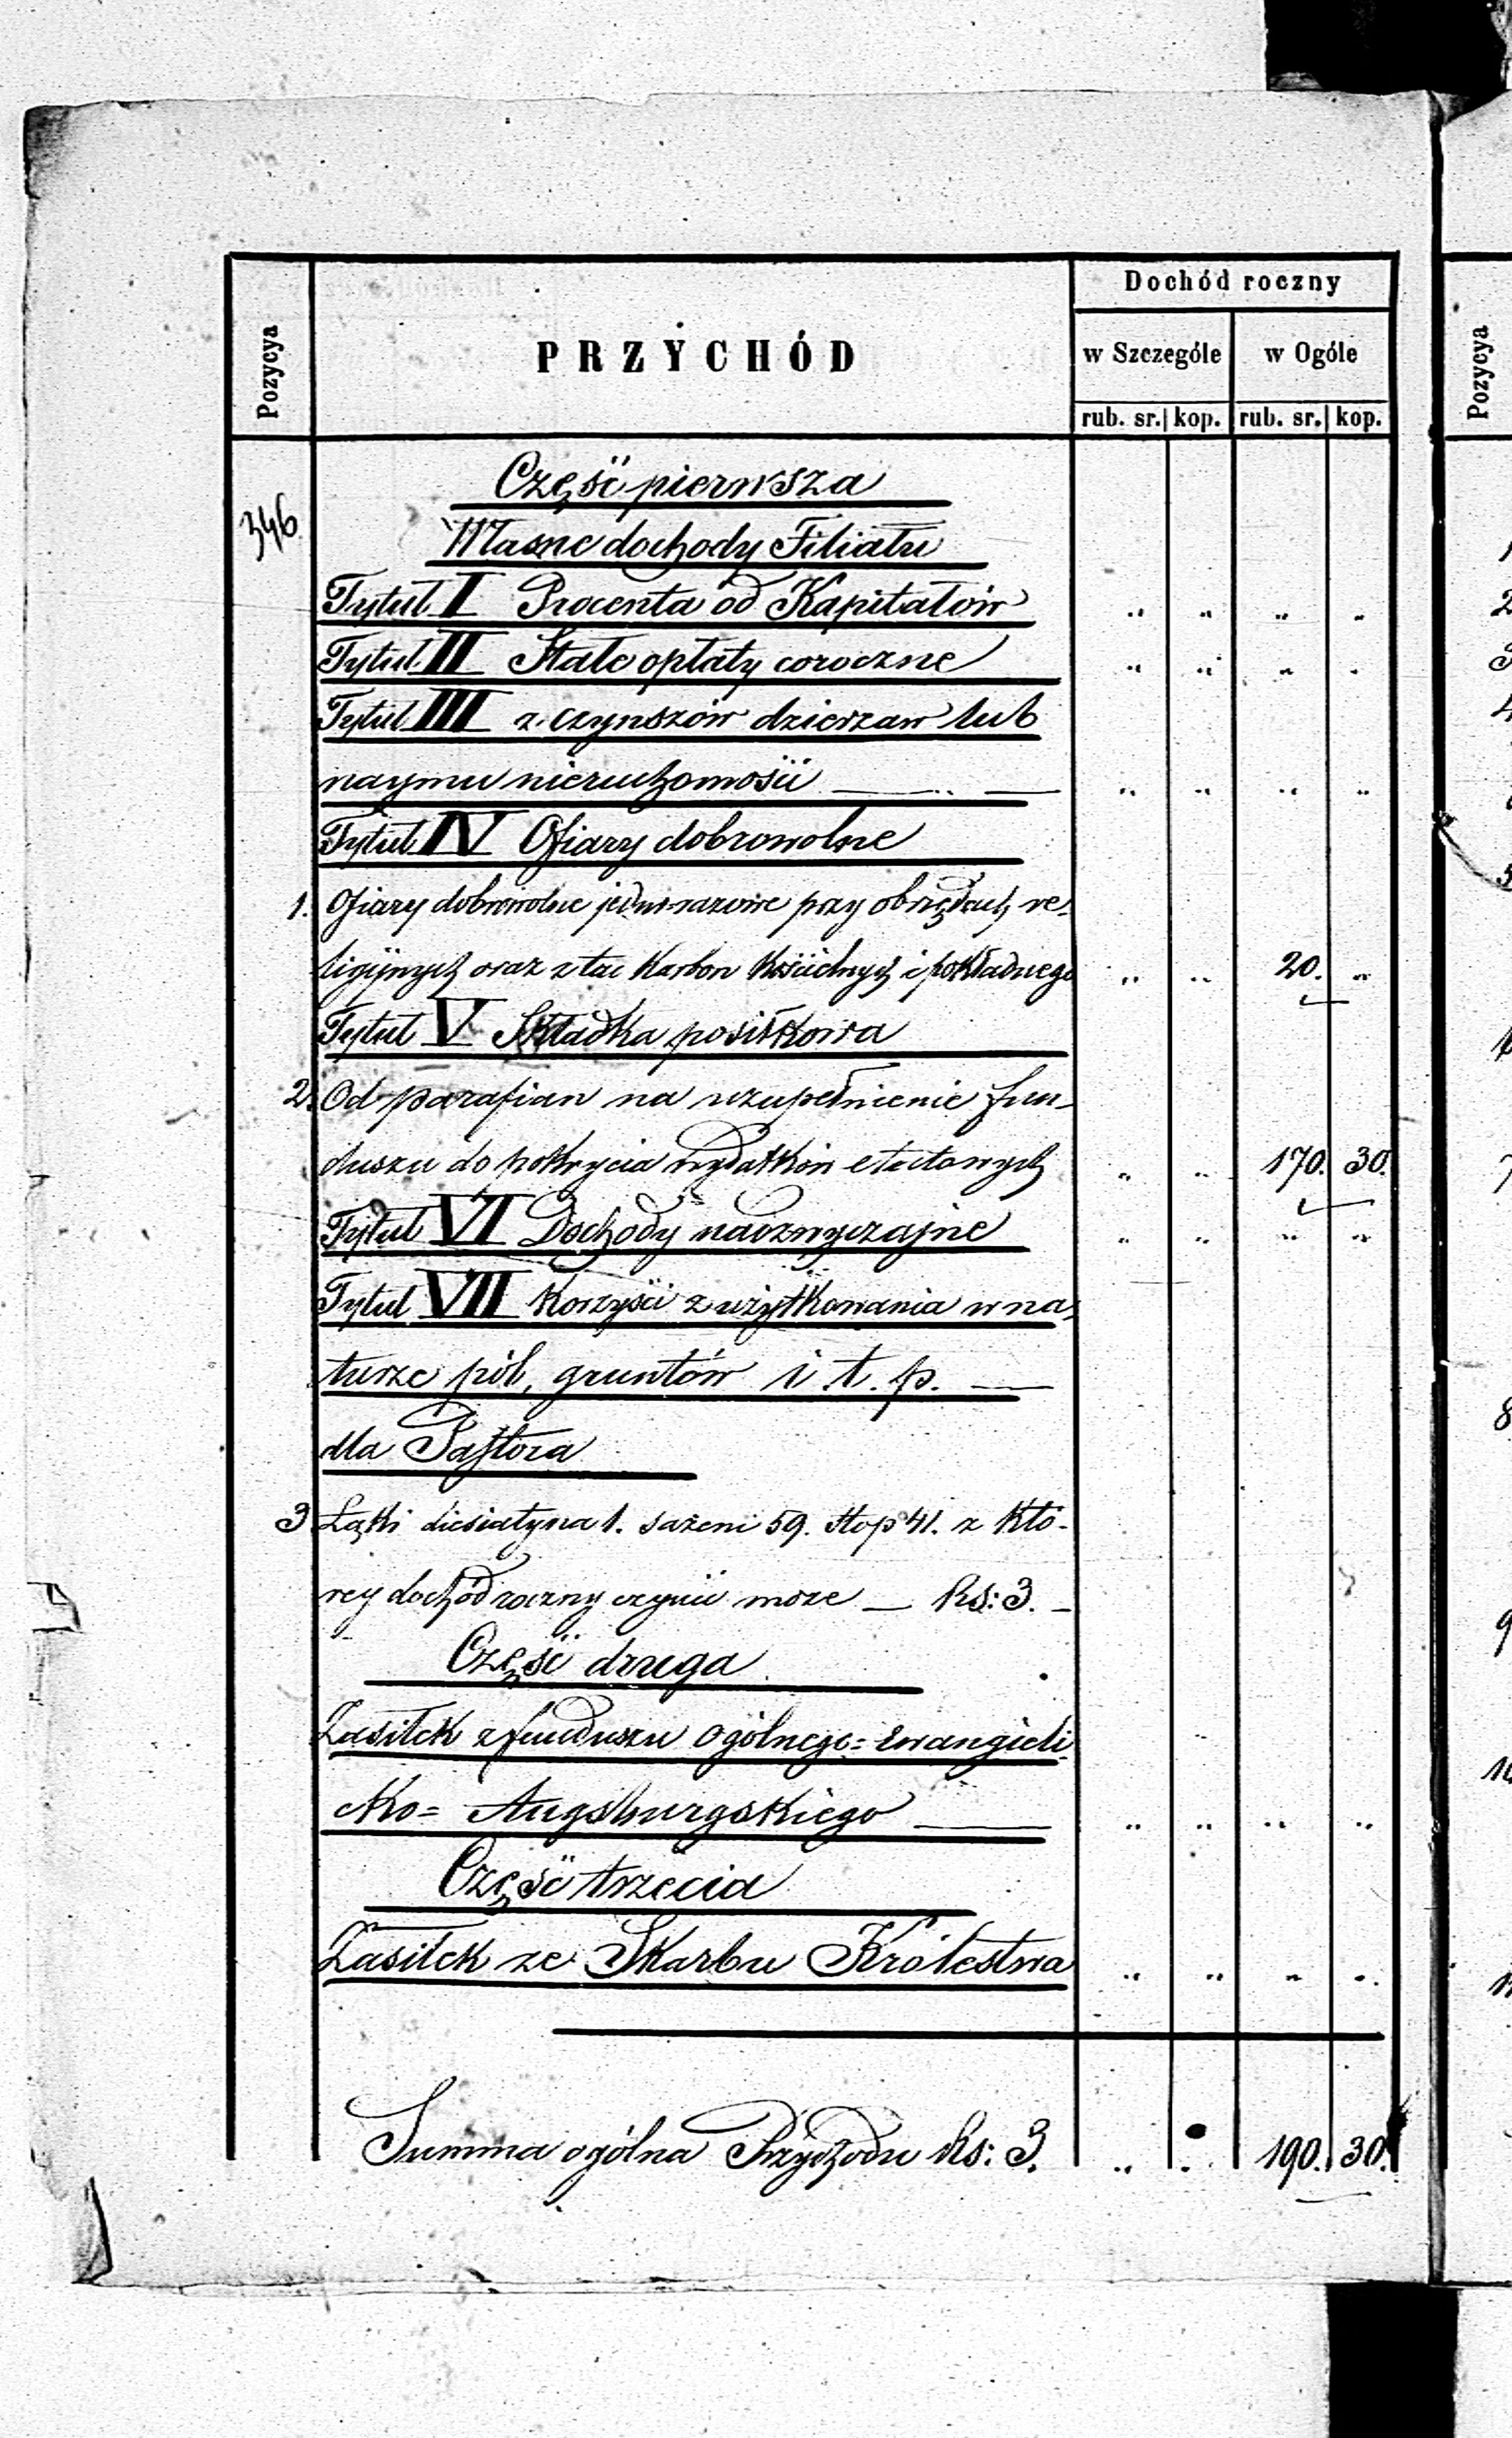 Dochód roczny
Pozycya
PRZYCHÓD
w Szczególe w Ogóle
rub. sr. kop. rub. sr. kop.
Pozycya
Część pierwsza
346
Własne dochody Filiału
Tytuł I Procenta od Kapitałów " " " "
Tytuł II Stałe opłaty coroczne " " " "
Tytuł III z czynszów dzierżaw lub
naymu nieruchomości — " — " " " "
Tytuł IV Ofiary dobrowolne
1. Ofiary dobrowolne jednorazowe przy obrzędach re-
ligijnych oraz z tac Karbon Kościelnych i pokładnego " " 20. "
Tytuł V Składka posiłkowa
2. Od parafian na uzupełnienie fun-
duszu do pokrycia wydatków etatowych " " 170. 30.
Tytuł VI Dochody nadzwyczajne " " " "
Tytuł VII Korzyści z użytkowania w na-
turze pól, gruntów i t. p. —
dla Pastora
3. Łąki diesiatyna 1. sażeni 59. stop 41. z któ-
rey dochód roczny czynić może — Rs: 3. —
Część druga
Zasiłek z funduszu ogólnego = Ewangieli-
cko = Augsburgskiego — " " " "
Część trzecia
Zasiłek ze Skarbu Królestwa " " " "
Summa ogólna Przychodu Rs: 3. " " 190. 30.